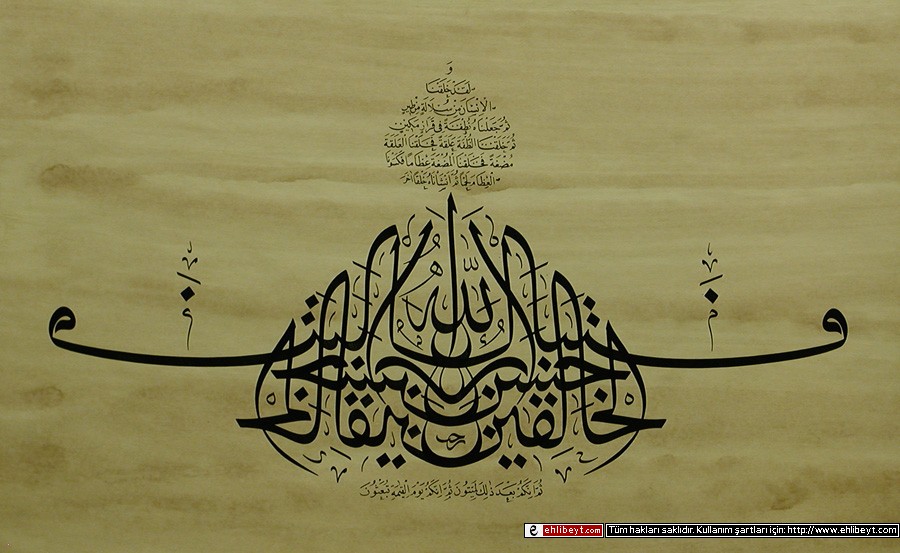 و
لقد خلقنا
الإنسان من سلالة من طين
ثم جعلناه نطفة في قرار مكين
ثم خلقنا النطفة علقة فخلقنا العلقة
مضغة فخلقنا المضغة عظاما فكسونا
العظام لحما ثم أنشأناه خلقا آخر
فتبارك الله أحسن الخالقين
ثم إنكم بعد ذلك لميتون ثم إنكم يوم القيمة تبعثون
ehlibeyt.com Tüm hakları saklıdır. Kullanım şartları için: http://www.ehlibeyt.com